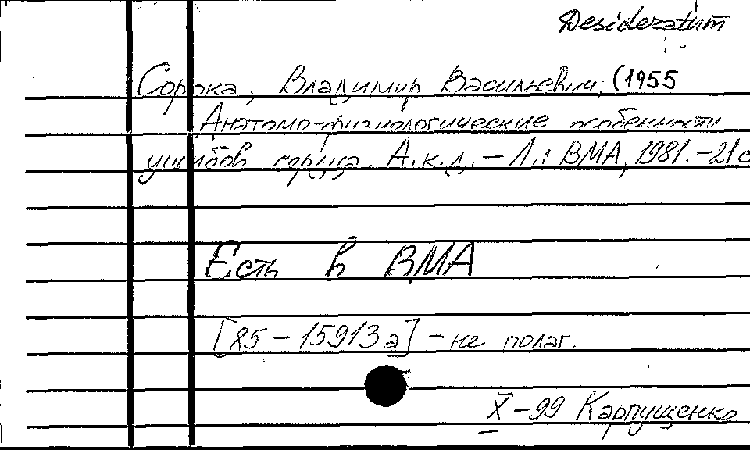 Desideratum
Сорока, Владимир Васильевич, (1955
Анатомо-физиологические особенности
ушибов сердца. А.к.д. – Л.: ВМА, 1981. – 21 с
Есть в ВМА
[85 – 15913а] – не полаг.
X – 99 Карпущенко